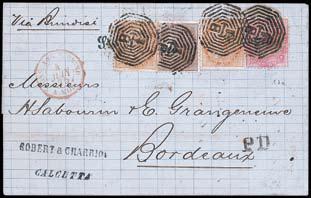 Via Brindisi
Messieurs
A. Sabourin & E. Grangeneuve
Bordeaux
P.D.
ROBERT & CHARRIOL
CALCUTTA